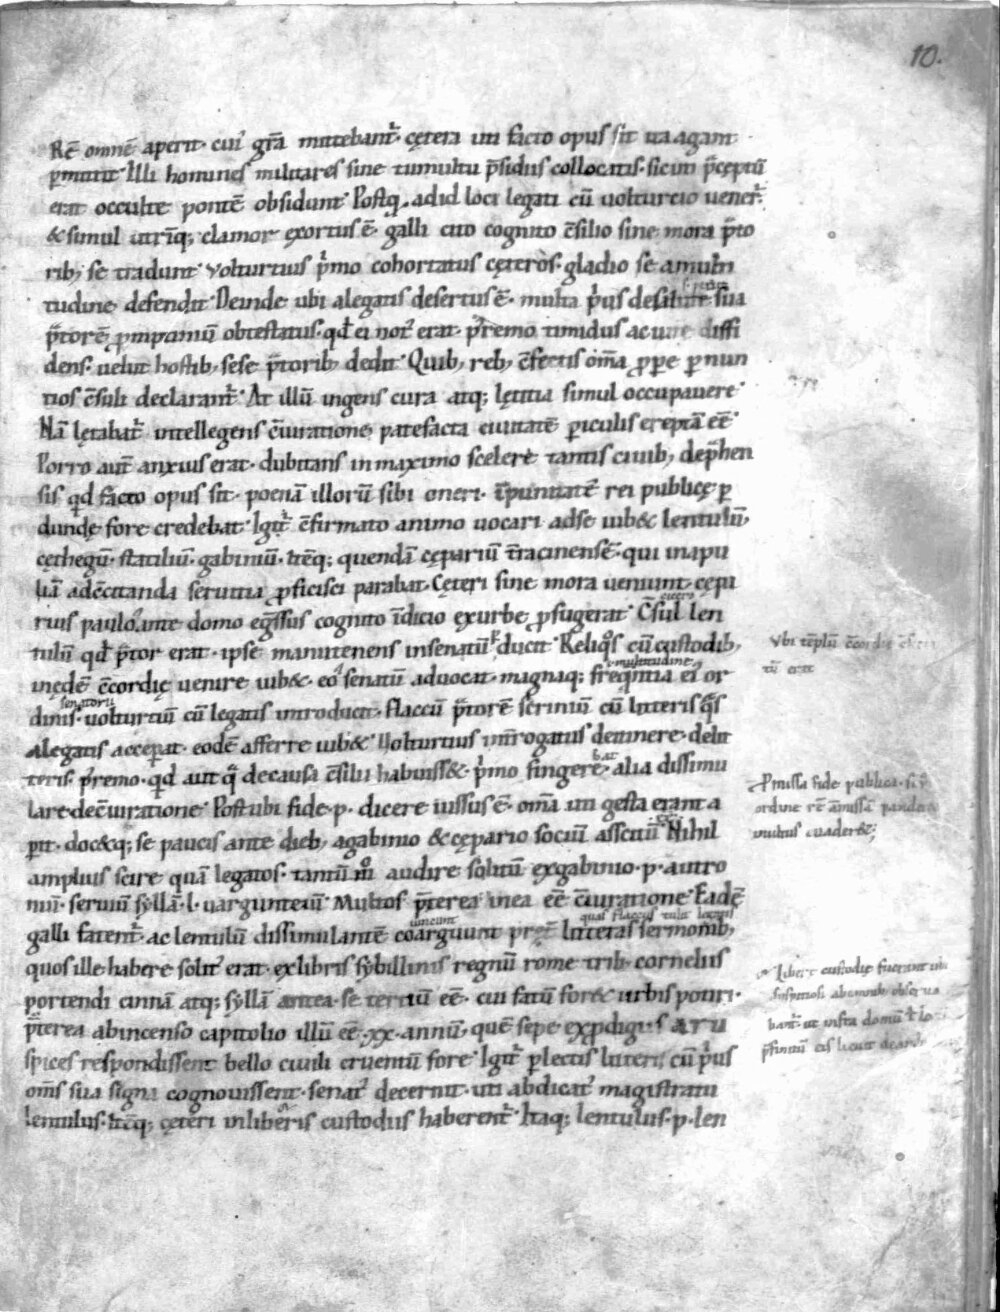 10.
Rē omnē aperit· cuiꝰ gr̄a mittebant᷑· cętera uti facto opus sit ita agant
p̱mittit· Illi homines militares sine tumultu p̄sidiis collocatis· sicuti p̄ceptū
erat occulte pontē obsidunt· Postq̄ adid loci legati cū uolturcio uener̄·
& simul utrīq; clamor exortus ē· galli cito cognito c̄silio sine mora p̄to
rib; se tradunt· Volturtius p̍mo cohortatus cęteros· gladio se amulti
tudine defendit· Deinde ubi alegatis desertus ē· multa p̍us desalute sua
p̄torē ꝓmptinū obtestatus· qd̄ ei notꝰ erat· p̍remo timidus ac uite diffi
dens· uelut hostib; sese p̄torib; dedit· Quib; reb; c̄fectis om̄a ꝓpe p̱ nun
tios c̄suli declarant᷑· At illū ingens cura atq; lętitia simul occupauere·
Nā lętabat᷑ intellegens c̄iuratione patefacta ciuitatē p̱iculis ereptā eē·
Porro aut̄ anxius erat· dubitans in maximo scelere tantis ciuib; dep̄hen
sis qd̄ facto opus sit· poenā illorū sibi oneri· īpunitatē rei publicę p̱
dundę fore credebat· Igit᷑ c̄firmato animo uocari adse iub& lentulū·
cęthegū· statiliū· gabiniū· itēq; quendā cępariū t̄racinensē· qui inapu
liā adc̄citanda seruitia ꝓficisci parabat· Cęteri sine mora ueniunt· cępa
rius paulo ante domo egr̄ssus cognito īdicio exurbe ꝓfugerat· C̄sul len
cicero
tulū qd̄ p̄tor erat· ipse manu tenens insenatū ducit· Reliqͦs cū custodib;
inędē c̄cordię uenire iub&· eo senatū aduocat· magnaq; freq̄ntia ei or
multitudine
dinis· uolturtiū cū legatis introducit· flaccū p̄torē scriniū cū litteris q̄s
senatorii
alegatis acceperat· eodē afferre iub&· Uolturtius int̄rogatus deitinere· delit
teris· p̍remo· qd̄ aut q̄ decausa c̄silii habuiss&· p̍mo fingere alia dissimu
lare· dec̄iuratione· Post ubi fide· p· dicere iussus ē· om̄a uti gesta erant a
p̱it· doc&q; se paucis ante dieb; agabinio & cępario sociū asscitū· Nihil
amplius scire quā legatos· tantū mͦ audire solitū exgabinio· p· autro
niū· seruiū syllā· l· uargunteiū· Multos p̄terea inea eē c̄iuratione· Eadē
galli fatent᷑· ac lentulū dissimulantē coarguunt pręt̄ litteras sermonib;
quas flaccus tulit
quos ille habere solitꝰ erat· ex libris sybillinis regnū rome trib; cornelus
portendi cinnā atq; syllā antea· se tertiū eē· cui fatū for& urbis potiri·
p̄terea abincenso capitolio illū eē· xx· annū· quē sepe exꝓdigiis aru
spices respondissent bello ciuili cruentū fore· Igit᷑ p̱lectis litteris cū p̍us
om̄s sua signa cognouissent· senatꝰ decernit· uti abdicatꝰ magistratu
lentulus· itēq; cęteri inliberis custodiis haberent᷑· Itaq; lentulus· p· len
Vbi tēplū c̄cordię
tū erat
P̱missa fide publica· si
ordine rē
inultus euader&;
Libere custodie fuerant